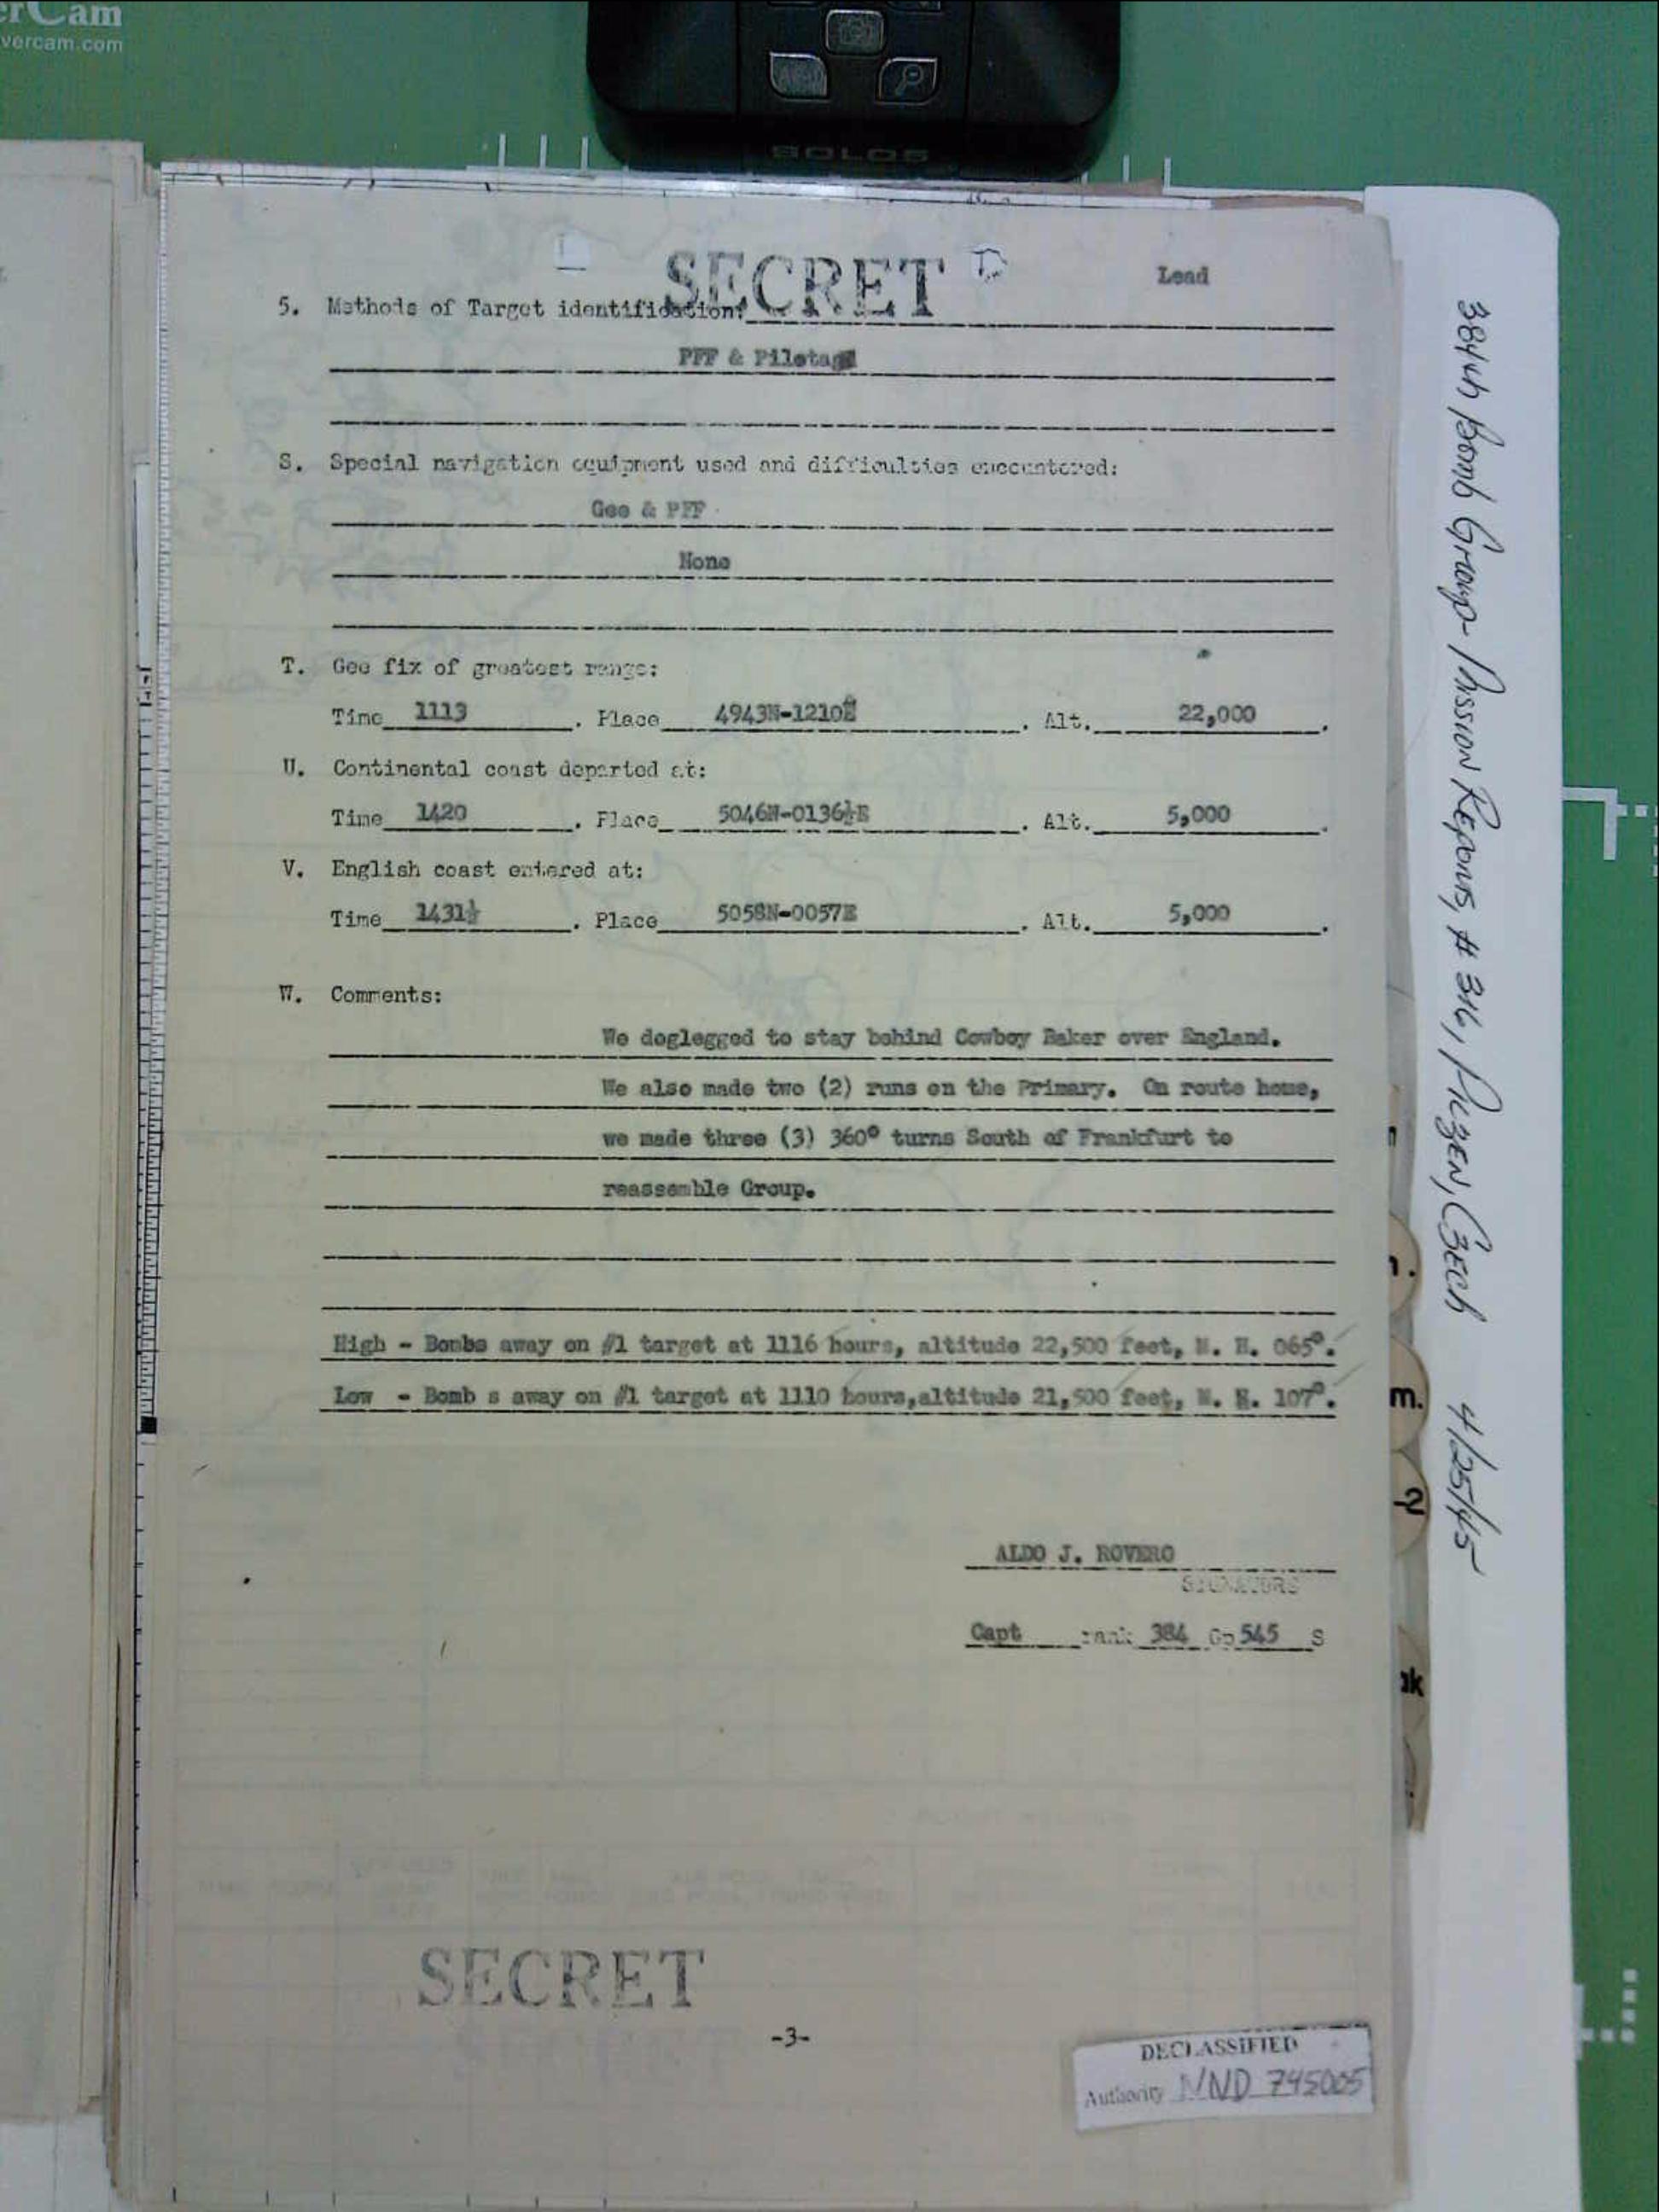 erCam
vercam.com
SOLOS
SECRET
Lead
5. Methods of Target identification:
PFF & Pilotage
S. Special navigation equipment used and difficulties encountered:
Gee & PFF
None
T. Gee fix of greatest range:
Time 1113 . Place 4943N-1210E . Alt. 22,000 .
U. Continental coast departed at:
Time 1420 . Place 5046N-0136½E . Alt. 5,000 .
V. English coast entered at:
Time 1431½ . Place 5058N-0057E . Alt. 5,000 .
W. Comments:
We doglegged to stay behind Cowboy Baker over England.
We also made two (2) runs on the Primary. On route home,
we made three (3) 360° turns South of Frankfurt to
reassemble Group.
High - Bombs away on #1 target at 1116 hours, altitude 22,500 feet, M. H. 065°.
Low - Bomb s away on #1 target at 1110 hours,altitude 21,500 feet, M. H. 107°.
ALDO J. ROVERO
SIGNATURE
Capt rank 384 Gp 545 S
SECRET
-3-
DECLASSIFIED
Authority NND 745005
384th Bomb Group- Mission Reports, # 316, Pilzen, Czech 4/25/45
m.
-2